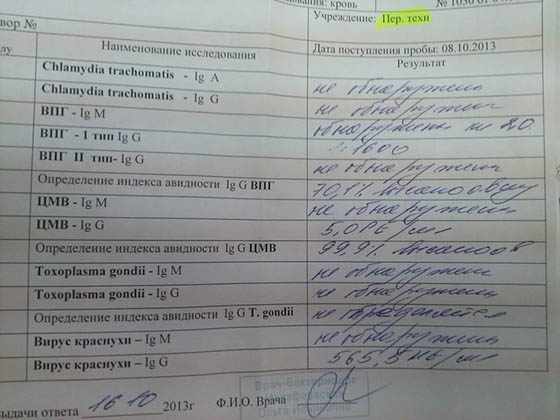 кровь
№ 1050
Учреждение: Пер. техн
вор №
Дата поступления пробы: 08.10.2013
Наименование исследования Результат
Chlamydia trachomatis - Ig A не обнаружены
Chlamydia trachomatis - Ig G не обнаружены
ВПГ - Ig M обнаружены
ВПГ - I тип Ig G 1:1600
ВПГ II тип- Ig G не обнаружены
Определение индекса авидности Ig G ВПГ 70,1%
ЦМВ - Ig M не обнаружены
ЦМВ - Ig G 5,0
Определение индекса авидности Ig G ЦМВ 99,9%
Toxoplasma gondii - Ig M не обнаружены
Toxoplasma gondii - Ig G не обнаружены
Определение индекса авидности Ig G T. gondii не
Вирус краснухи – Ig M не обнаружены
Вирус краснухи – Ig G 565,3
выдачи ответа 16 10 2013г Ф.И.О. Врача